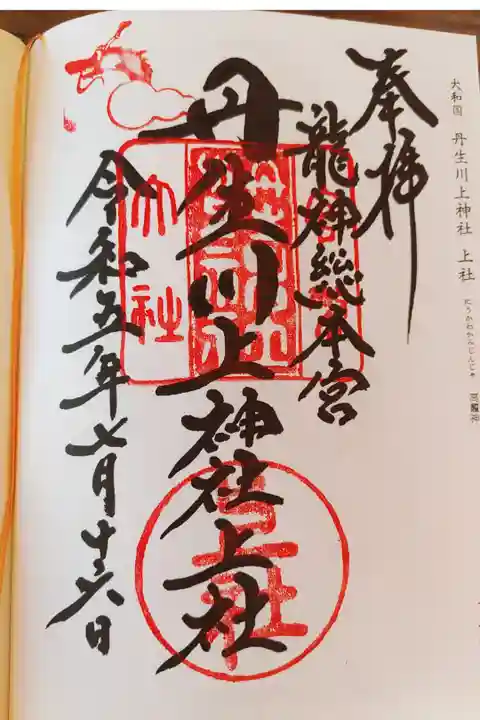 大和国 丹生川上神社 上社
にうかわかみじんじゃ
高龗神
奉拝
龍神総本宮
丹生川上神社上社
令和五年七月十六日